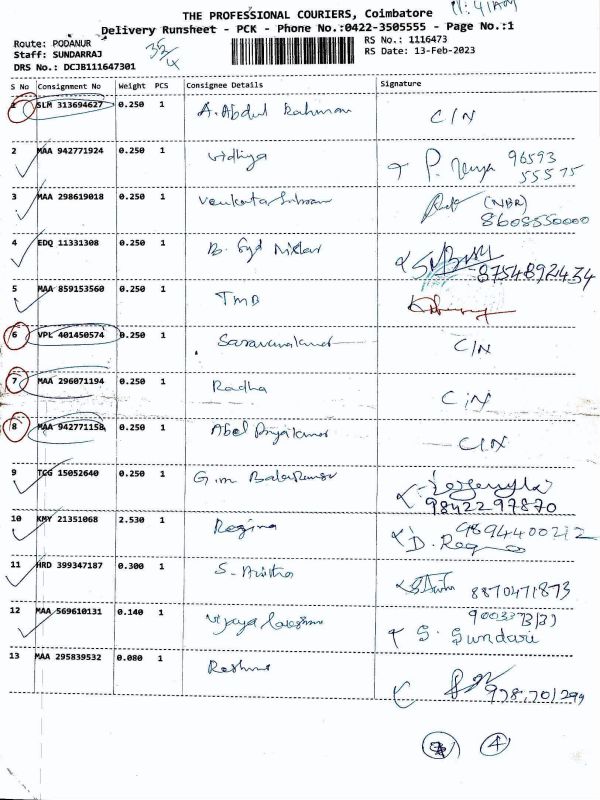 11:41AM
THE PROFESSIONAL COURIERS, Coimbatore
Delivery Runsheet - PCK - Phone No.:0422-3505555 - Page No.:1
Route: PODANUR
RS No.: 1116473
Staff: SUNDARRAJ
RS Date: 13-Feb-2023
DRS No.: DCJB111647301
S No Consignment No Weight PCS Consignee Details Signature
1 SLM 313694627 0.250 1 A. Abdul Rahman C/N
2 MAA 942771924 0.250 1 Vidhya 96593
55575
3 MAA 298619018 0.250 1 (NBR)
8608550000
4 EDQ 11331308 0.250 1 B. Syd
8754892434
5 MAA 859153560 0.250 1 TMB
6 VPL 401450574 0.250 1 C/N
7 MAA 296071194 0.250 1 Radha C/N
8 MAA 942771158 0.250 1 Abel C/N
9 TCG 15052640 0.250 1 G.M
9842297870
10 KMY 21351068 2.530 1 Regina 9894400212
D. Reg
11 HRD 399347187 0.300 1 S. 8870471873
12 MAA 569610131 0.140 1 Vijaya
S. Sundari
13 MAA 295839532 0.080 1
4